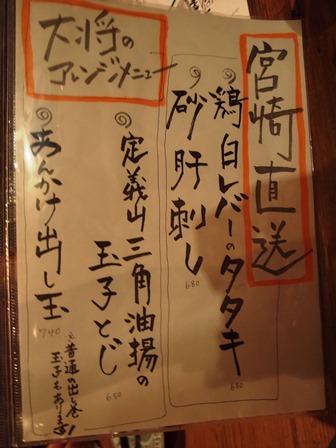 宮崎直送
鶏白レバーのタタキ
650
砂肝刺し
680
大将の
アレンジメニュー
定義山三角油揚の
玉子とじ
650
あんかけ出し玉
740
普通の出し巻
玉子もあります!